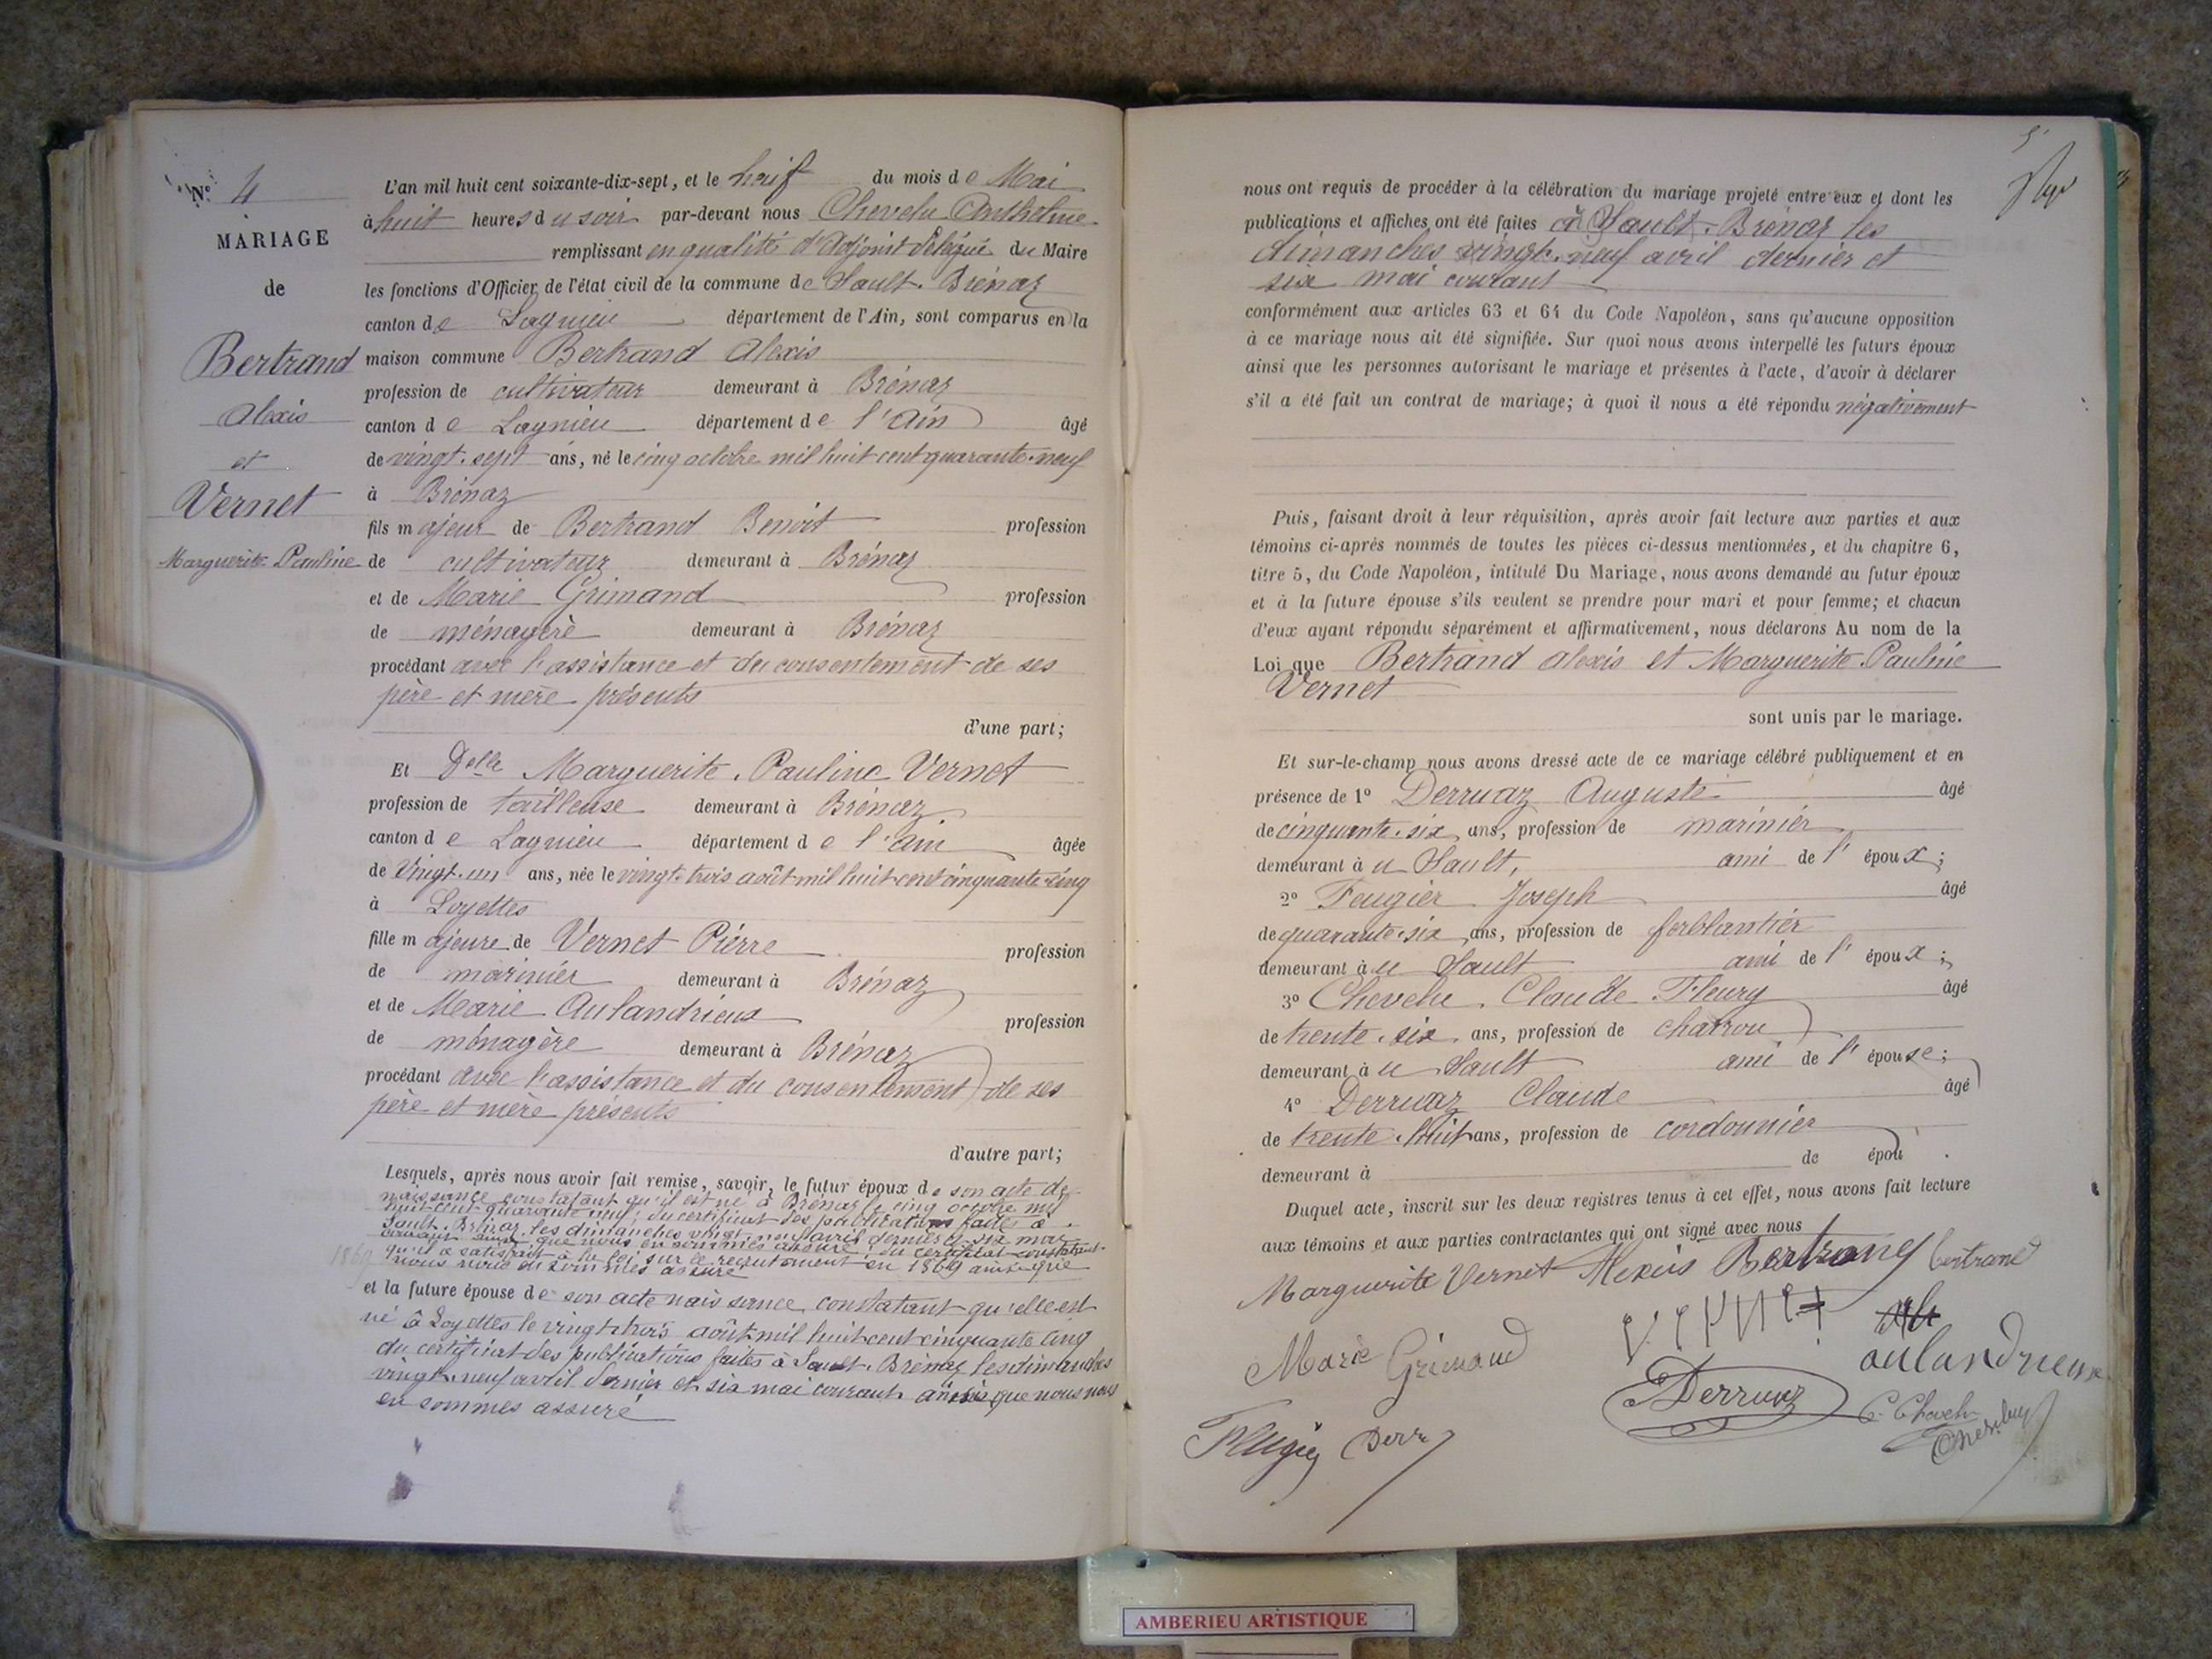 N.º 4
MARIAGE
de
Bertrand
Alexis
et
Vernet
Marguerite Pauline
L'an mil huit cent soixante-dix-sept, et le du mois de Mai
à huit heures du soir par-devant nous Chevelu Anthelme
remplissant en qualité d'Adjoint délégué du Maire
les fonctions d'Officier de l'état civil de la commune de Sault-Brénaz
canton de Lagnieu département de l'Ain, sont comparus en la
maison commune Bertrand Alexis
profession de cultivateur demeurant à Brénaz
canton de Lagnieu département de l'Ain âgé
de vingt-sept ans, né le cinq octobre mil huit cent quarante-neuf
à Brénaz
fils majeur de Bertrand Benoit profession
de cultivateur demeurant à Brénaz
et de Marie Grimand profession
de ménagère demeurant à Brénaz
procédant avec l'assistance et du consentement de ses
père et mère présents
d'une part;
Et Delle Marguerite Pauline Vernet
profession de tailleuse demeurant à Brénaz
canton de Lagnieu département de l'Ain âgée
de Vingt-un ans, née le vingt-trois août mil huit cent cinquante-cinq
à Loyettes
fille majeure de Vernet Pierre profession
de marinier demeurant à Brénaz
et de Marie Aulandrieux profession
de ménagère demeurant à Brénaz
procédant avec l'assistance et du consentement de ses
père et mère présents
d'autre part;
Lesquels, après nous avoir fait remise, savoir, le futur époux de son acte de
naissance constatant qu'il est né à Brénaz le cinq octobre mil
huit cent quarante neuf, du certificat des publications faites à
Sault-Brénaz les dimanches vingt-neuf avril dernier et six mai
courant ainsi que nous en sommes assuré, du certificat constatant
1869 qu'il a satisfait à la loi sur le recrutement en 1869 ainsi que
nous nous en sommes assuré
et la future épouse de son acte naissance constatant qu'elle est
né à Loyettes le vingt-trois août mil huit cent cinquante cinq
du certificat des publications faites à Sault-Brénaz les dimanches
vingt-neuf avril dernier et six mai courant ainsi que nous nous
en sommes assuré
5
nous ont requis de procéder à la célébration du mariage projeté entre eux et dont les
publications et affiches ont été faites à Sault-Brénaz les
dimanches vingt-neuf avril dernier et
six mai courant
conformément aux articles 63 et 64 du Code Napoléon, sans qu'aucune opposition
à ce mariage nous ait été signifiée. Sur quoi nous avons interpellé les futurs époux
ainsi que les personnes autorisant le mariage et présentes à l'acte, d'avoir à déclarer
s'il a été fait un contrat de mariage; à quoi il nous a été répondu négativement
Puis, faisant droit à leur réquisition, après avoir fait lecture aux parties et aux
témoins ci-après nommés de toutes les pièces ci-dessus mentionnées, et du chapitre 6,
titre 5, du Code Napoléon, intitulé Du Mariage, nous avons demandé au futur époux
et à la future épouse s'ils veulent se prendre pour mari et pour femme; et chacun
d'eux ayant répondu séparément et affirmativement, nous déclarons Au nom de la
Loi que Bertrand Alexis et Marguerite Pauline
Vernet
sont unis par le mariage.
Et sur-le-champ nous avons dressé acte de ce mariage célébré publiquement et en
présence de 1º Derruaz Auguste âgé
de cinquante-six ans, profession de marinier
demeurant à u Sault, ami de l' époux;
2º Feugier Joseph âgé
de quarante-six ans, profession de ferblantier
demeurant à u Sault ami de l' époux;
3º Chevelu Claude Fleury âgé
de trente-six ans, profession de charron
demeurant à u Sault ami de l' épouse;
4º Derruaz Claude âgé
de trente-huit ans, profession de cordonnier
demeurant à de épou
Duquel acte, inscrit sur les deux registres tenus à cet effet, nous avons fait lecture
aux témoins et aux parties contractantes qui ont signé avec nous
Marguerite Vernet Alexis Bertrand bertrand
Marie Grimaud Vernet aulandrieux
Derruaz C. Chevelu
Feugier Derr
AMBERIEU ARTISTIQUE